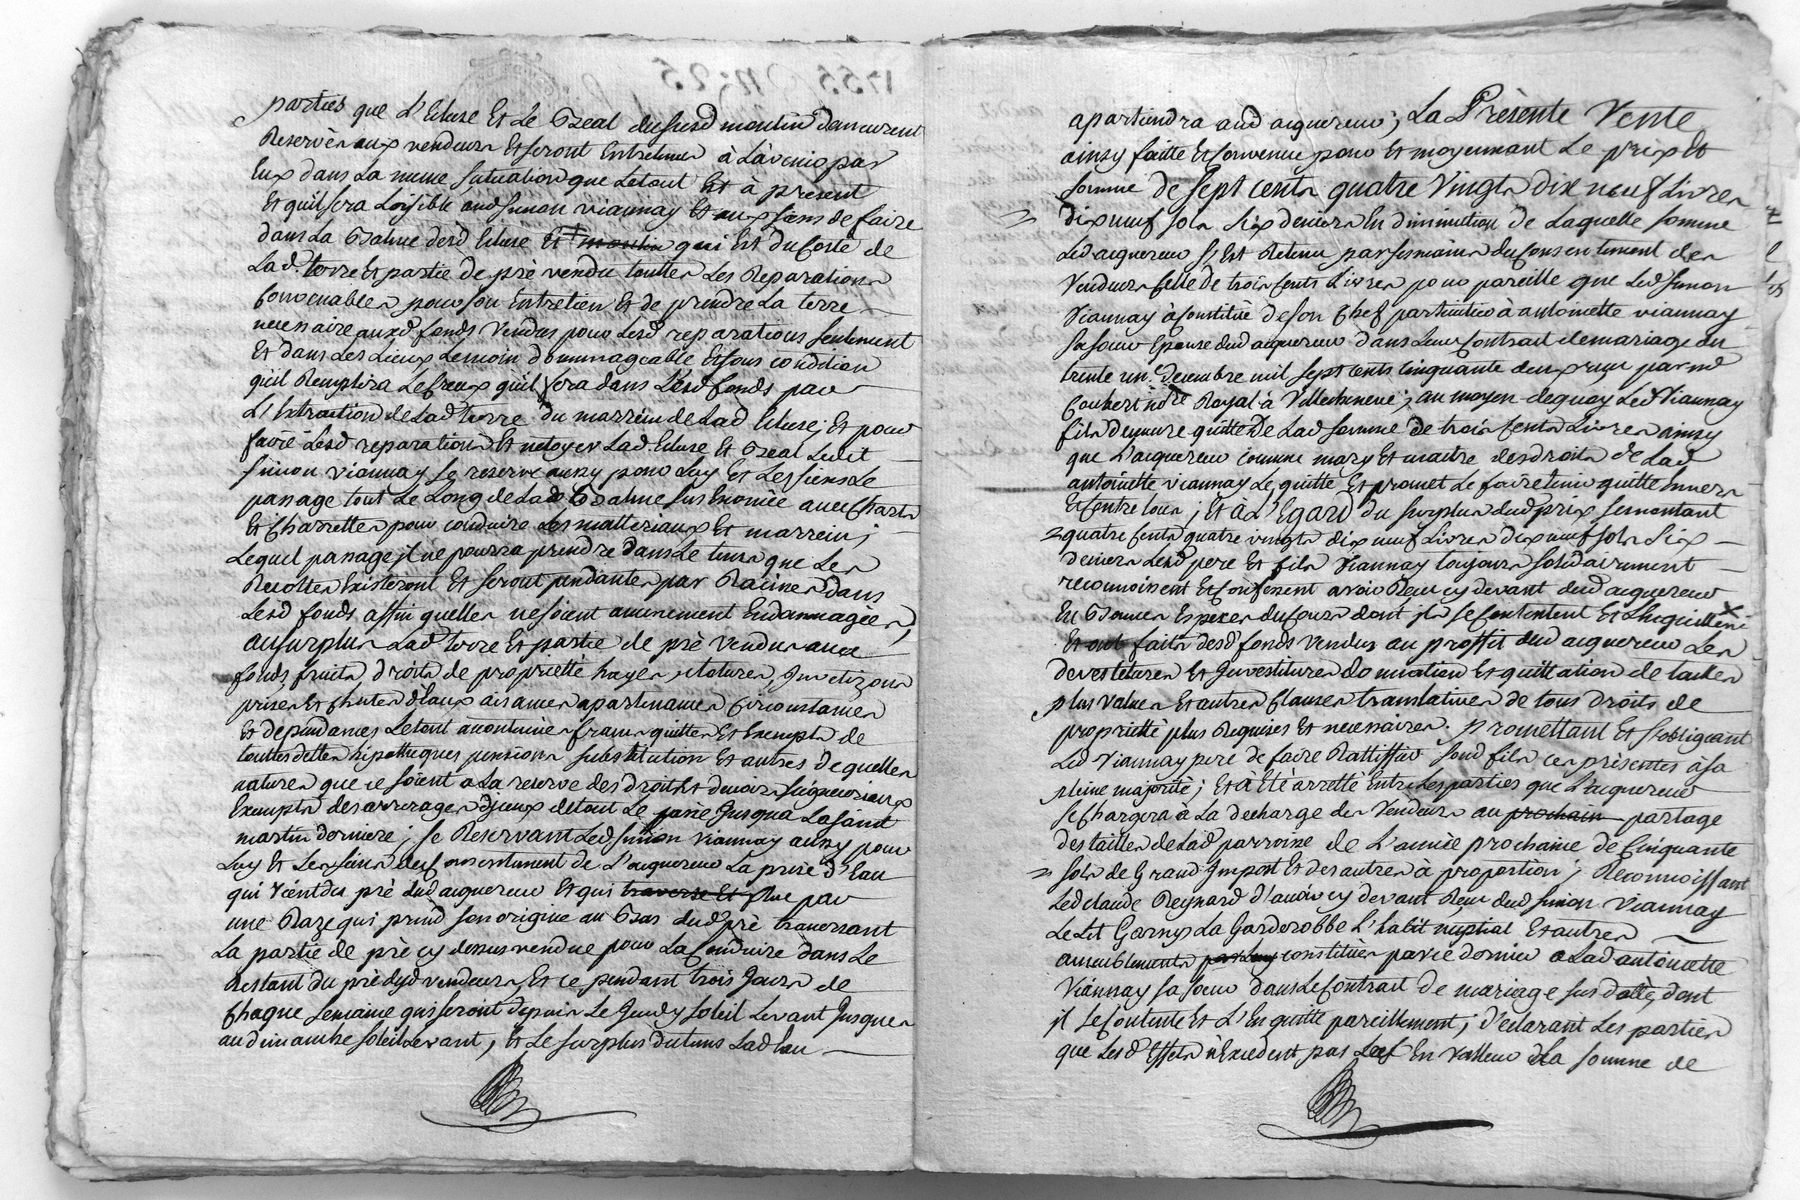 parties que L'Ecluse Et Le Bzeal dususd moulin demeurent
Reservés aux vendeurs Et seront Entretenus à L'avenir par
Eux dans La meme situation que Letout Est à présent
Et qu'il sera Loisible aud simon viannay Et aux siens de faire
dans La Balme desd Ecluse Et moulin qui Est du Costé de
Lad. terre Et partie de pré vendu touttes Les Reparations
Convenables pour son Entretien Et de prendre La terre
necessaire auxd fonds Vendus pour Lesd reparations seulement
Et dans Les Lieux Le moin dommageable Et sous condition
qu'il Remplira Le Creux qu'il fera dans Lesd fonds par
L'Extraction de Lad terre du marrein de Lad Ecluse; Et pour
faire Lesd reparations Et netoyer Lad. Ecluse Et Bzeal Ledit
simon Viannay se reserve aussy pour Luy Et Les siens Le
passage tout Le Long de Lad Balme sus Enoncée avec Chars
Et Charrettes pour conduire Les matteriaux Et marrein;
Lequel passage il ne pourra prendre dans Le tems que Les
Recoltes Existeront Et seront pendantes par Racines dans
Lesd fonds affin quelles ne soient aucunement Endommagées,
au surplus Lad terre Et partie de pré vendus avec
fonds, fruits, droits de propriette hayes clotures,
prises Et chutes d'Eaux aisances apartenances Circonstances
Et dependances Letout franc quitte Et Exempts de
touttes dettes hipotheques pensions substitution Et autres de quelles
natures que ce soient a La reserve des droits Et devoirs seigneuriaux
Exempts des arrerages d'iceux detout Le passé Jusqua Lasaint
martin derniere; se Reservant Led simon Viannay aussy pour
Luy Et Les siens du Consentement de L'acquereur La prise d'Eau
qui vient du pré dud acquereur Et qui traverse Et flue par
une Raze qui prend son origine au Bas dud pré traversant
La partie de pré cy dessus vendue pour La Conduire dans Le
Restant du pré desd vendeurs, Et ce pendant trois Jours de
Chaque semaine qui seront depuis Le Jeudy soleil Levant Jusques
au dimanche soleil Levant, Et Le surplus du tems Lad Eau
apartiendra aud acquereur; La Présente Vente
ainsy faitte Et Convenue pour Et moyennant Le prix Et
somme de sept cents quatre Vingts dix neuf Livres
dix neuf sols six deniers En diminution de Laquelle somme
Led acquereur s'Est Retenu par ses mains du Consentement des
Vendeurs Celle de trois Cents Livres pour pareille que Led simon
Viannay à Constitué de son Chef particulier à antoinette viannay
sa soeur Epouse dud acquereur dans Leur Contrat de mariage du
trente un. decembre mil sept cents Cinquante deux reçu par md
Coubert nore Royal à Villedeneuve; au moyen de quoy Led Viannay
fils demeure quitte de Lad somme de trois Cents Livres ainsy
que L'acquereur comme mary Et maitre des droits de Lad
antoinette viannay Le quitte Et promet Le faire tenir quitte Envers
Et Contre tous; Et à L'Egard du surplus dud prix se montant
quatre Cents quatre vingts dix neuf Livres dix neuf sols six
deniers Lesd pere Et fils Viannay toujours solidairement
reconnoissent Et Confessent avoir Reçu cy devant dud acquereur
En Bonnes Especes du Cours dont ils se Contentent Et L'En quittent
Et ont faits desd fonds vendus au proffit dud acquereur Les
devestitures Et Investitures donnation Et quittation de touttes
plus values Et autres Clauses translatives de tous droits de
propriétté plus Requises Et necessaires. promettant Et s'obligeant
Led Viannay pere de faire Rattiffier Soud fils ces présentes à sa
pleine majorité; Et à Eté arretté Entre Les parties que L'acquereur
se Chargera à La decharge des Vendeurs au prochain partage
des tailles de Lad parroisse de L'année prochaine de Cinquante
sols de Grand Impot Et des autres à proportion; Reconnoissant
Led Claude Reynard d'avoir cy devant Reçu dud simon Viannay
Le Lit Garny La Garderobbe L'habit nuptial Et autres
ameublements par Luy constitués par ce dernier a Lad antoinette
Viannay sa soeur dans Le Contrat de mariage sus datté, dont
il se Contente Et L'En quitte pareillement; d'eclarant Les parties
que Lesd Effets n'Excedent pas En Valleur de La somme de